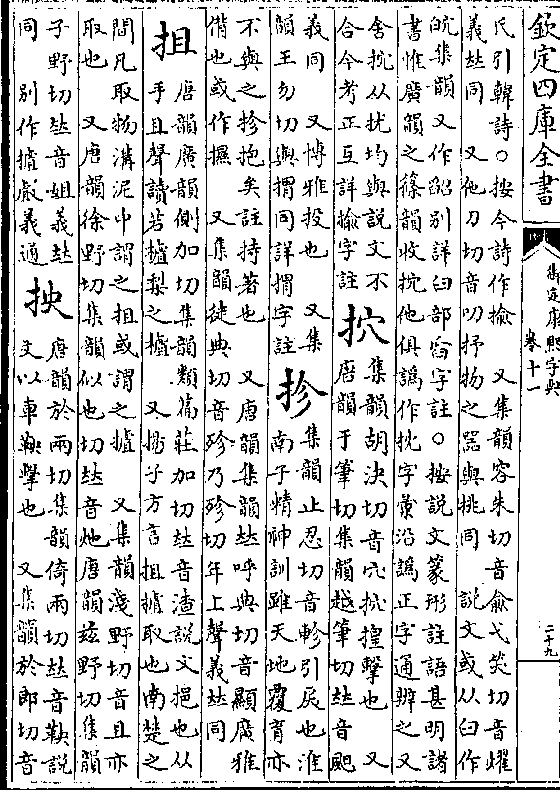 欽定四庫全書
御定康熙字典 卷十一
二十九
氏引韓詩○按今詩作揄 又集韻容朱切音俞弋笑切音燿
義𠀤同 又他刀切音叨抒物之器與挑同 說文或从臼作
㿑集韻又作舀別詳臼部舀字註○按說文篆形註語甚明諸
書惟廣韻之篠韻收抭他俱譌作抌字彙沿譌正字通辨之又
舍抭从抌均與說文不
合今考正互詳揄字註
抗
集韻胡決切音穴抭揘擊也 又
唐韻于筆切集韻越筆切𠀤音颶
義同 又博雅投也 又集
韻王勿切與搰同詳搰字註
抮
集韻止忍切音軫引戾也淮
南子精神訓雖天地覆育亦
不與之抮抱矣註持著也 又唐韻集韻𠀤呼典切音顯廣雅
偕也或作攇 又集韻徒典切音殄乃殄切年上聲義𠀤同
抯
唐韻廣韻側加切集韻類篇莊加切𠀤音渣說文挹也从
手且聲讀若樝梨之樝 又揚子方言抯摣取也南楚之
間凡取物溝泥中謂之抯或謂之摣 又集韻淺野切音且亦
取也 又唐韻徐野切集韻似也切𠀤音灺唐韻茲野切集韻
子野切𠀤音姐義𠀤
同 別作摣戲義通
抰
唐韻於兩切集韻倚兩切𠀤音鞅說
文以車鞅擊也 又集韻於郎切音